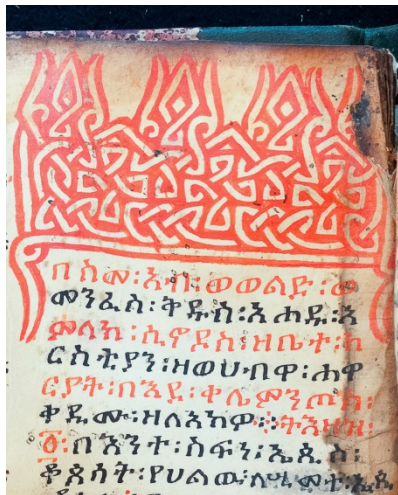 በስመ፡አብ፡ወወልድ፡ወ
መንፈስ፡ቅዱስ፡አሐዱ፡አ
ምላክ፡ሲኖዶስ፡ዘቤተ፡ክ
ርስቲያን፡ዘወሀብዋ፡ሐዋ
ርያት፡በእደ፡ቀሌምንጦስ፡
ቀዲሙ፡ዘለአከዎ፡፡ትእዛዝ፡
፩፡በእንተ፡ስፍን፡ኤጲስ፡
ቆጶሳት፡የሀልዉ፡ለሢመተ፡ኤጲ